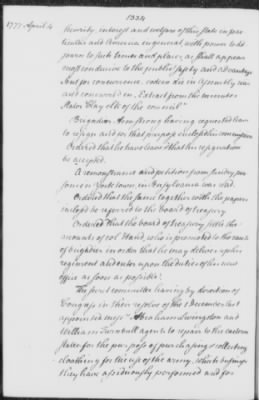 1777 April 4
security, interest and welfare of this State in par
ticular and America in general with power to ad
journ to such times and places, as shall appear
most conducive to the public safety and advantage
Sent for concurrence, orders are in assembly rea
and concurred in. Extract from the minutes
of the council"
Brigadier Armstrong having requested leave
to resign and for that purpose inclosed his commission
Ordered that he have leave & that his resignation
be accepted.
A remonstrance and petition from sundry per
sons in York town, in Pensylvania was read.
Ordered that the same together with the papers
enclosed be referred to the board of treasury
Ordered that the board of treasury settle the
accounts of col Hand, who is promoted to the rank
of brigadier in order that he may deliver up his
regiment and enter upon the duties of his new
office as soon as possible.
The secret committee having by direction of
Congress in their resolve of the 1 December last
appointed messrs Abraham Livingston and
William Turnbull agents to repair to the eastern
states for the purpose of purchasing & collecting
cloathing for the use of the army, which business
they have assiduously performed and for